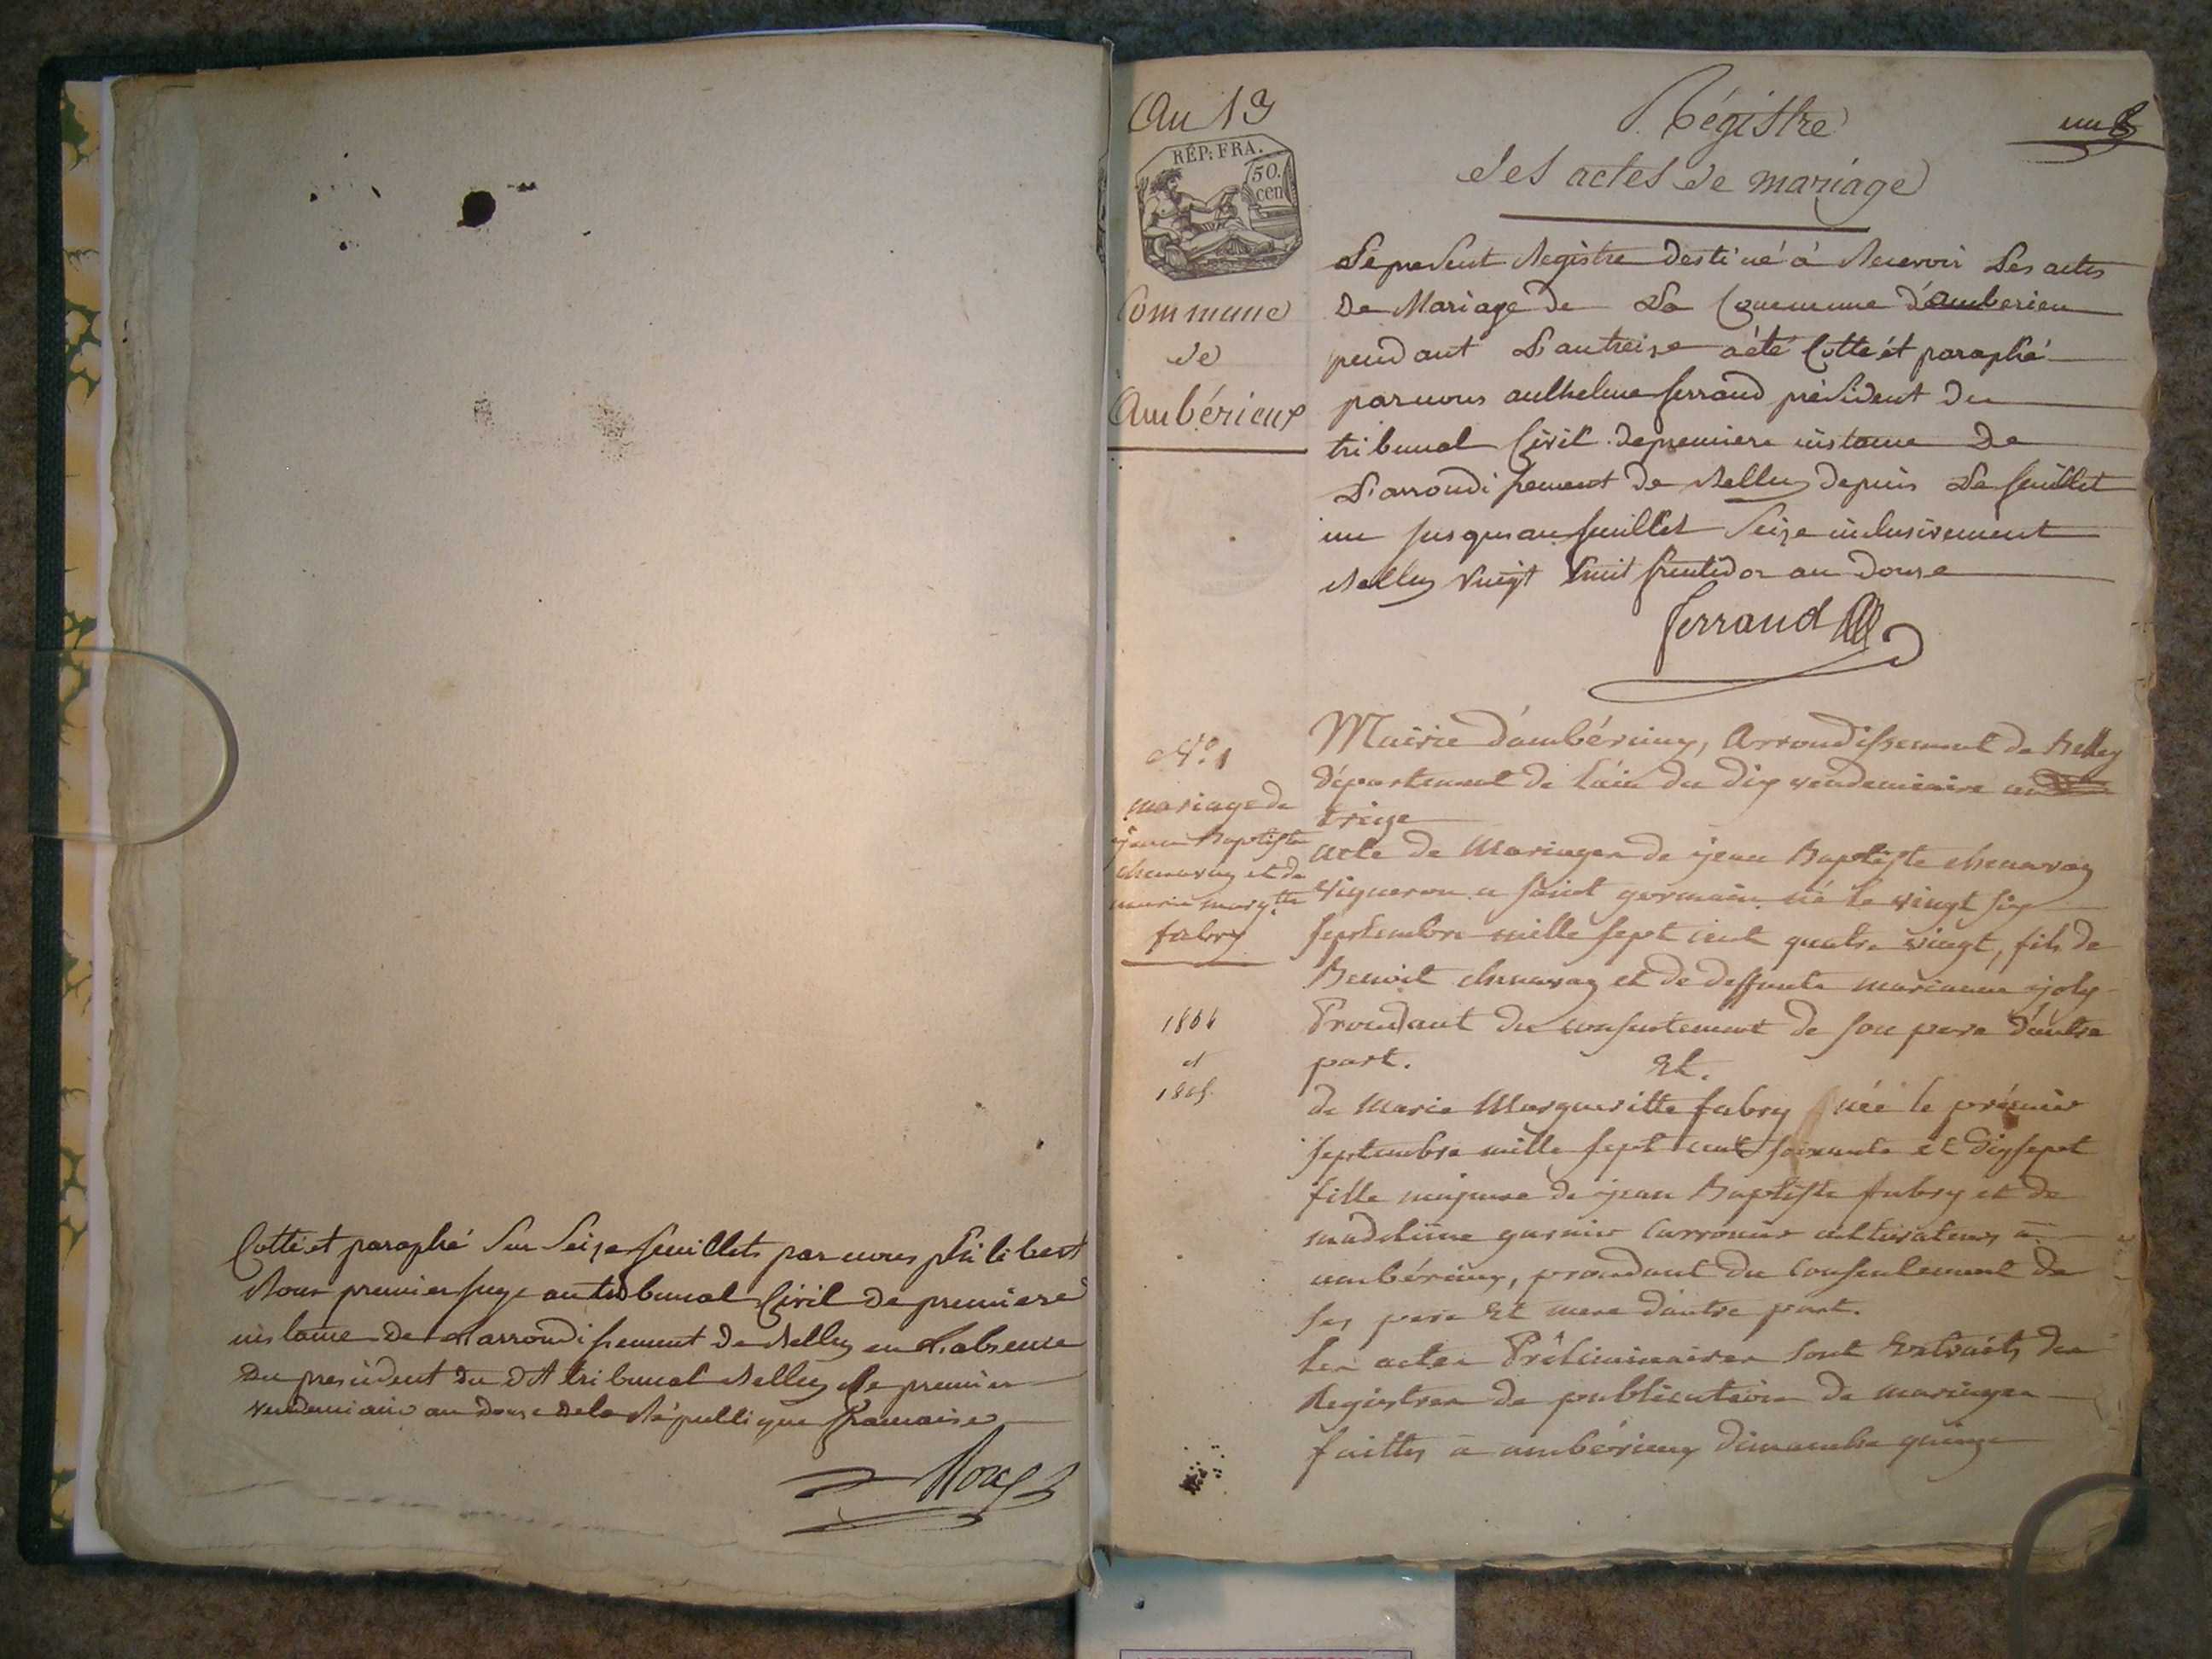 Cotté et paraphé Sur Seize feuillets par nous philibert
Roux premier juge au tribunal Civil de premiere
instance de L'arrondissement de Belley en L'absence
Du president du dt tribunal Belley Le premier
vendemiaire an douze de la République francaise
Roux
An 13
RÉP: FRA.
50.
cen
Commune
de
Ambérieux
Régistre
des actes de mariage
un
Le present Registre destiné à Recevoir Les actes
De Mariage de La Commune d'amberieu
pendant L'an treize a été Cotté et paraphé
par nous anthelme ferrand président du
tribunal Civil de premiere instance De
L'arrondissement de Belley depuis Le feuillet
un jusqu'au feuillet Seize inclusivement
Belley vingt huit fructidor an douze
ferrand
No. 1
mariage de
jean Baptiste
chenavay et de
marie margtte
fabry
1804
et
1805
Mairie d'ambérieux, Arrondissement de Belley
département de l'ain du dix vendemiaire an
treize
acte de Mariage de jean Baptiste chenavay
vigneron a saint germain né le vingt six
septembre mille sept cent quatre vingt, fils de
Benoit chenavay et de deffunte marianne joly
Procédant du consentement de son pere d'autre
part. Et.
de Marie Margueritte fabry née le prémier
septembre mille sept cent soixante et dix sept
fille majeure de jean Baptiste fabry et de
madelaine garnier cultivateurs à
ambérieux, procédant du Consentement de
ses pere Et mere d'autre part.
les actes Préliminaires sont Extraits des
Registres de publication de mariages
faittes à ambérieux dimanche quinze